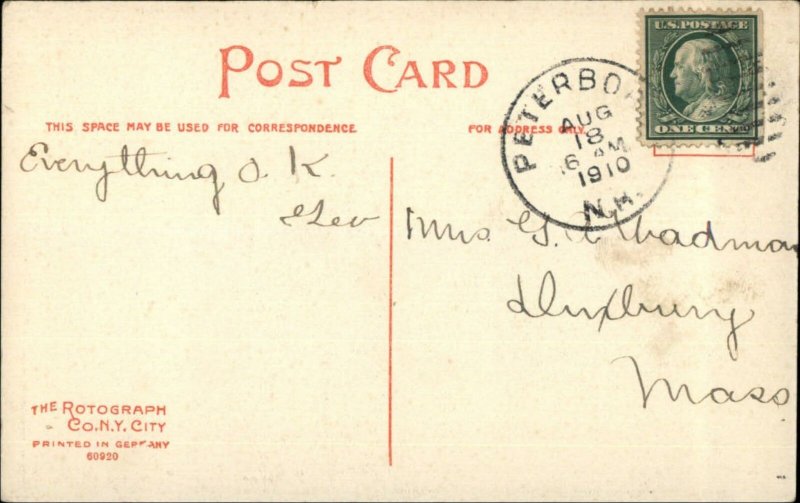 POST CARD
THIS SPACE MAY BE USED FOR CORRESPONDENCE
FOR ADDRESS ONLY.
U.S. POSTAGE
ONE CENT
PETERBORO
AUG
18
6 AM
1910
N.H.
Everything O.K.
Mrs. G.
Duxbury
Mass
THE ROTOGRAPH
CO. N.Y. CITY
PRINTED IN GERMANY
60920